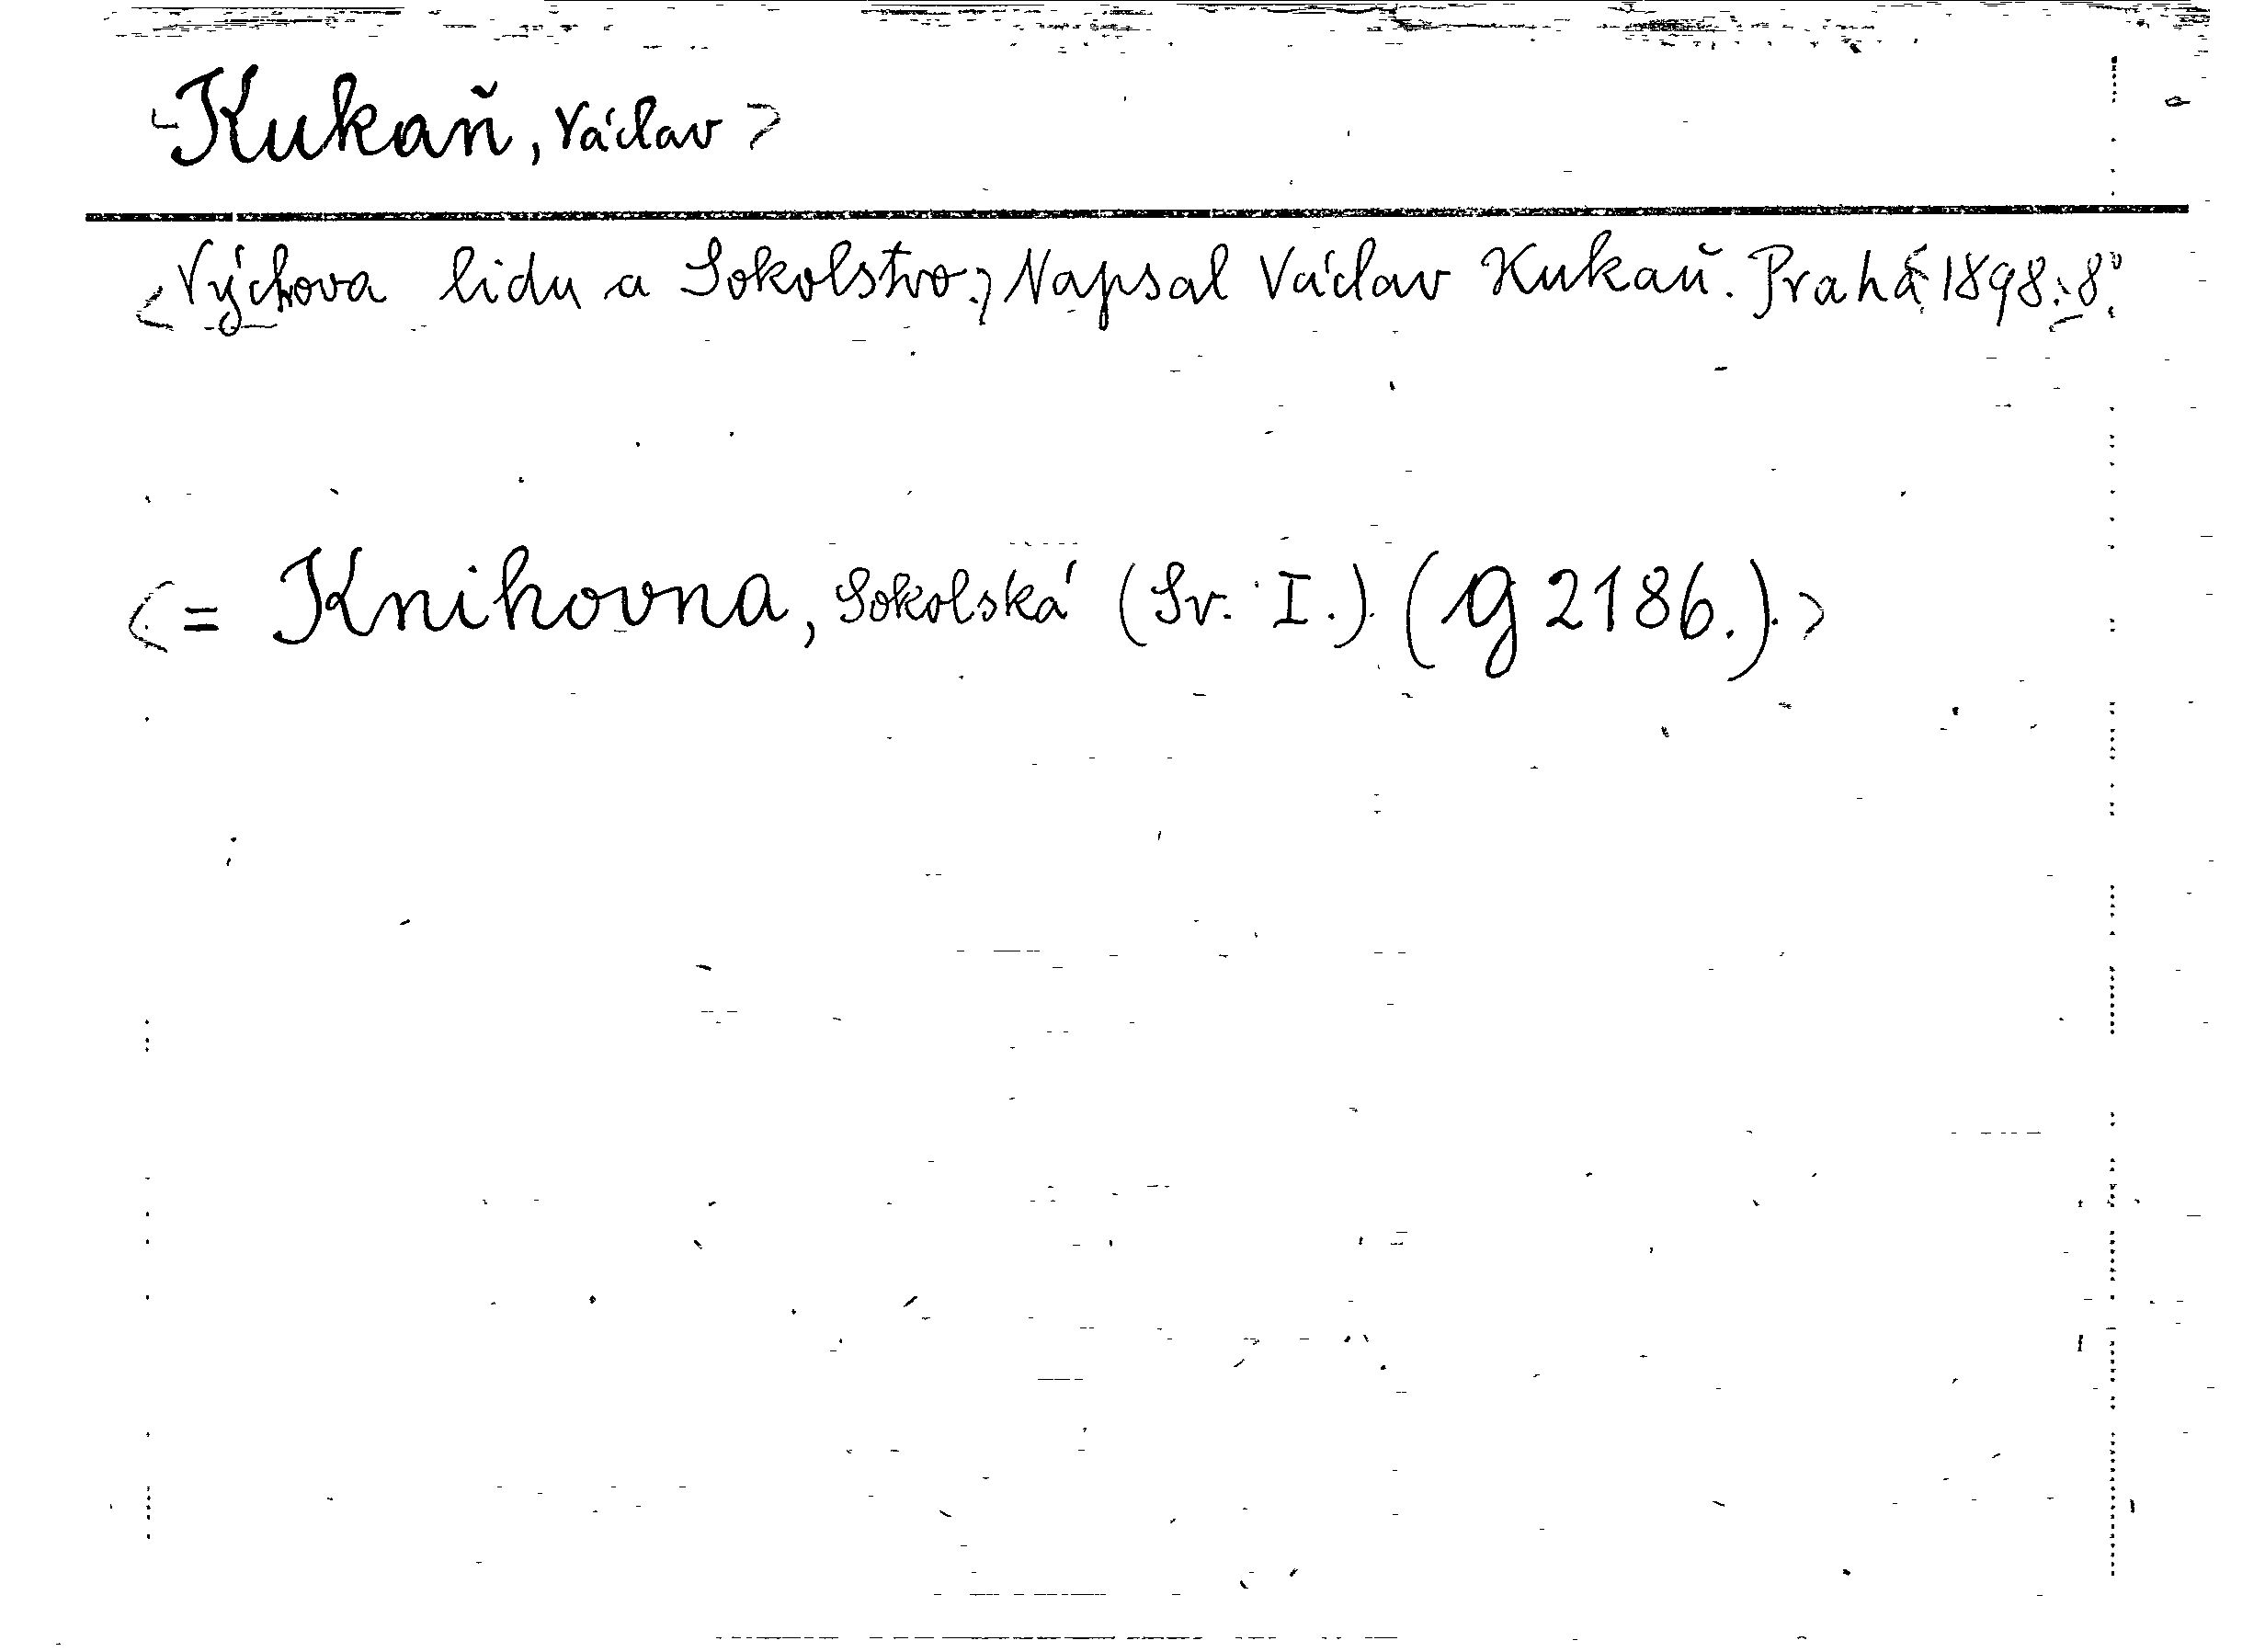 <Kukaň, Václav>
<Výchova lidu a Sokolstvo.> Napsal Václav Kukaň. Praha < 1898. 8°.
<= Knihovna, Sokolská (Sv. I.) (g 2186.).>